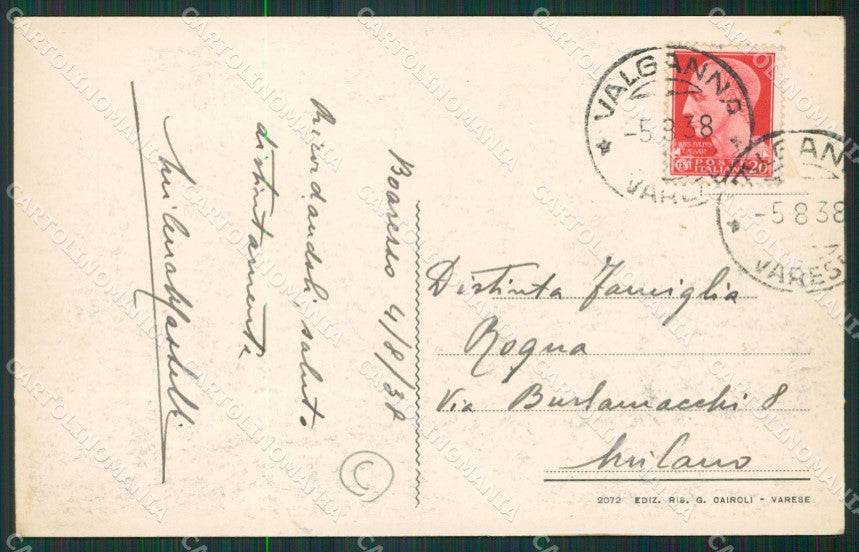 4/8/38
Ricordandoli, saluto
distintamente
VALGANNA
-5.8.38
VARESE
POSTE
ITALIANE
20
VALGANNA
-5.8.38
VARESE
Distinta Famiglia
Rogna
Via Burlamacchi 8
Milano
2072 EDIZ. RIS. G. CAIROLI - VARESE
CARTOLINOMANIA